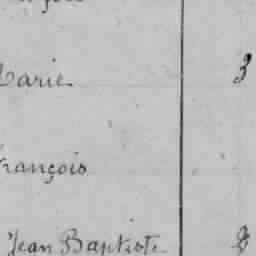 Marie 3
François
Jean Baptiste